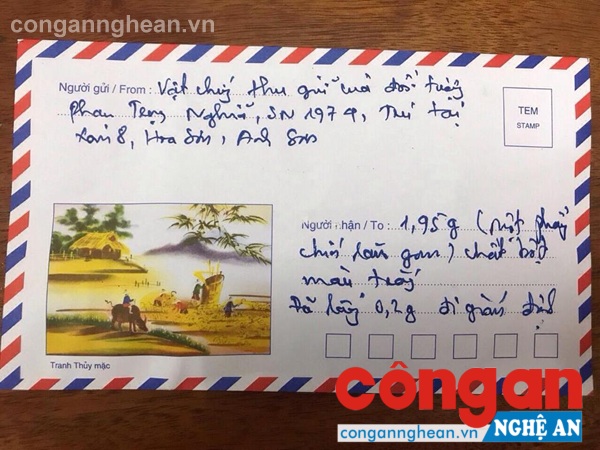 congannghean.vn
Người gửi / From : Vật chứng thu giữ của đối tượng
Phan Trọng Nghĩa, SN 1974, Trú tại
xóm 8, Hoa Sơn, Anh Sơn
TEM
STAMP
Người nhận / To : 1,95g (một phẩy
chín lăm gam) chất bột
màu trắng
Đã lấy 0,2g đi giám định
Tranh Thủy mặc
côngan
congannghean.vn
NGHỆ AN